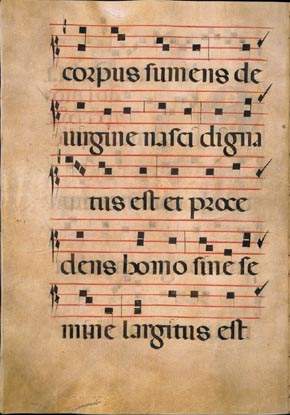 corpus sumens de
uirgine nasci digna
tus est et proce
dens homo sine se
mine largitus est